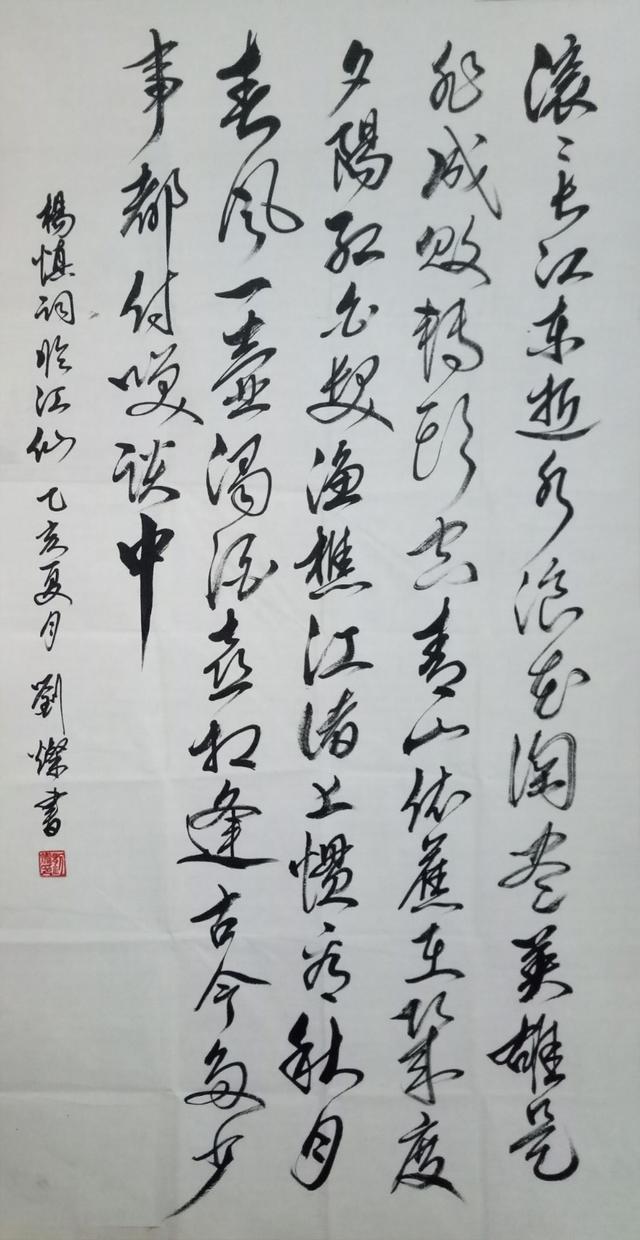 滚〻长江东逝水浪花淘尽英雄是
非成败转头空青山依舊在幾度
夕陽红白髮渔樵江渚上惯看秋月
春风一壺濁酒喜相逢古今多少
事都付咲谈中
楊慎词临江仙 乙亥夏月 劉燦書